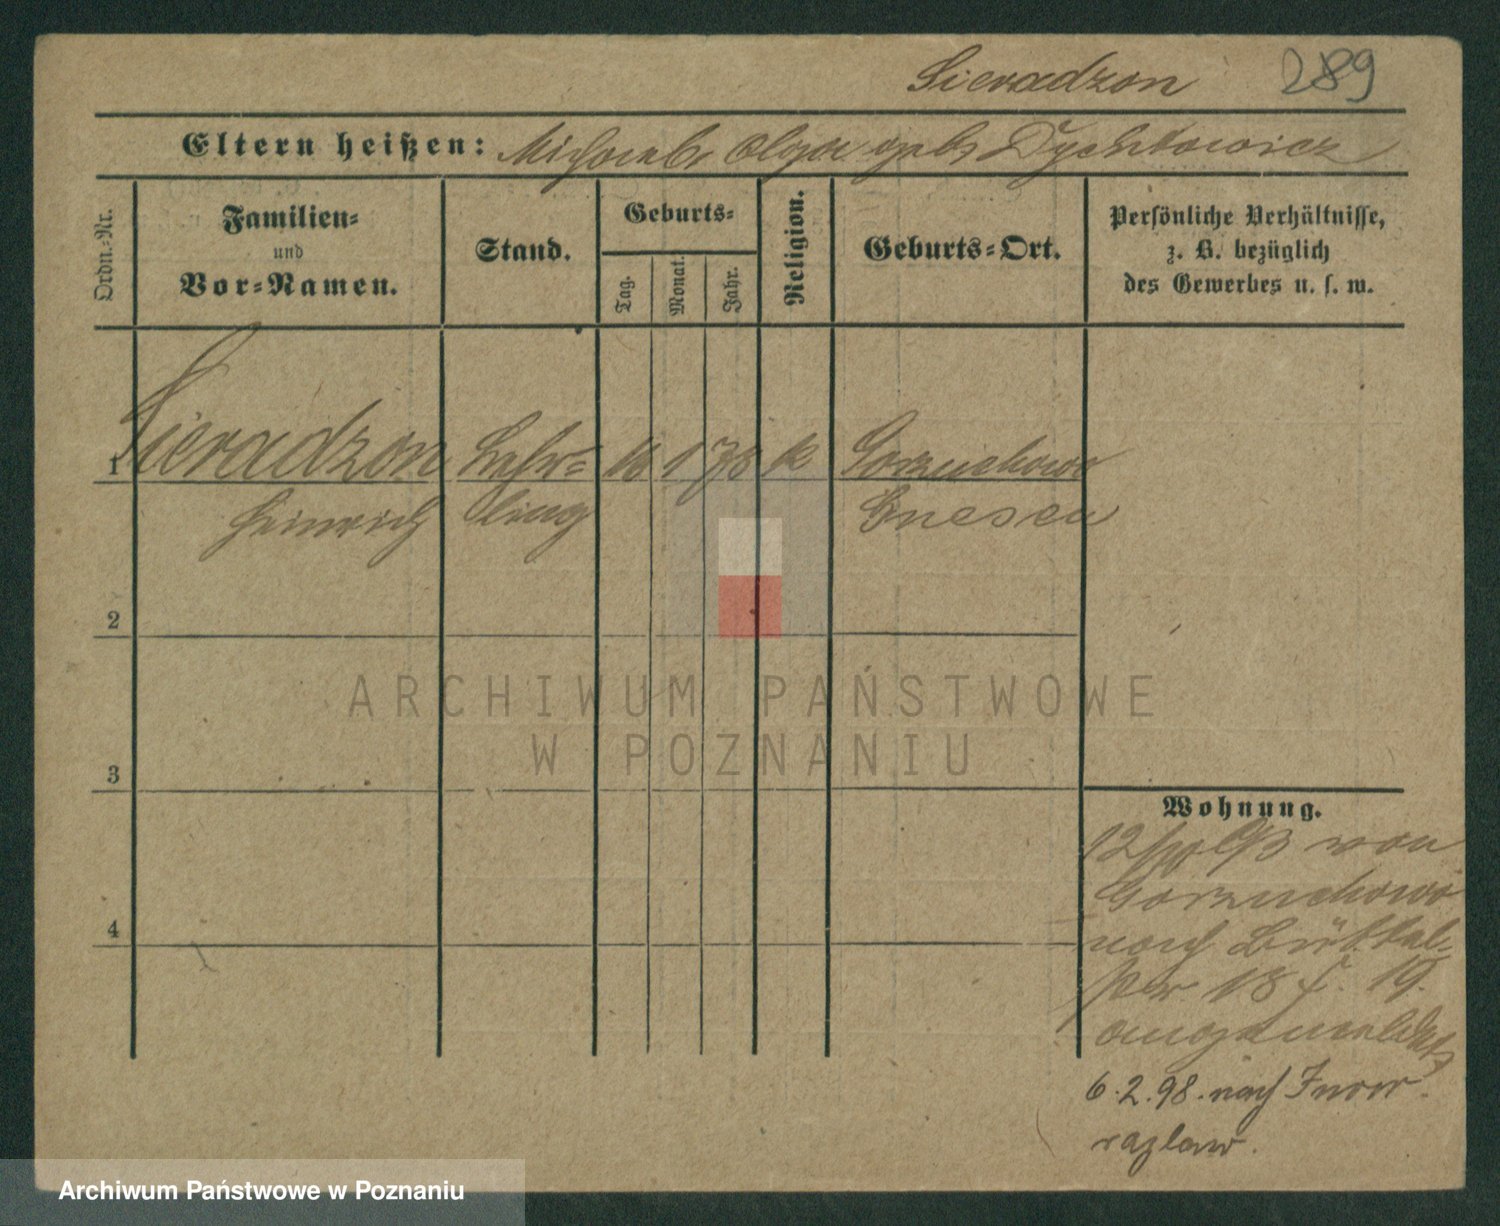 Sieradzon 289
Eltern heißen: Michael, Olga geb. Dychtowicz
Ordn.-Nr.
Familien-
und
Vor-Namen.
Stand.
Geburts-
Tag.
Monat.
Jahr.
Religion.
Geburts-Ort.
Persönliche Verhältnisse,
z. B. bezüglich
des Gewerbes u. s. w.
1 Sieradzon Lehr= 1 78 k Gorzuchowo
Heinrich ling Gnesen
2
ARCHIWUM PAŃSTWOWE
W POZNANIU
3
4
Wohnung.
12/10 93 von
Gorzuchowo
nach Büttel-
str. 18 19.
angemeldet
6.2.98. nach Inow-
razlaw.
Archiwum Państwowe w Poznaniu